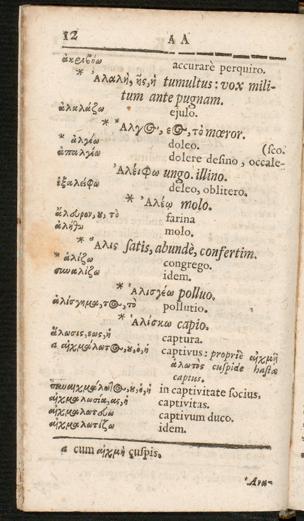 12 Α Λ
ἀκριβόω accurarè perquiro.
* Ἀλαλὴ, ῆς, ἡ tumultus: vox mili-
tum ante pugnam.
ἀλαλάζω ejulo.
* Ἄλγος, εος, τὸ mœror.
* ἀλγέω doleo. (sco.
ἀπαλγέω dolere desino, occale-
Ἀλείφω ungo. illino.
ἐξαλείφω deleo, oblitero.
* Ἀλέω molo.
ἄλευρον, ου, τὸ farina
ἀλήθω molo.
* Ἅλις satis, abundè, confertim.
* ἁλίζω congrego.
συναλίζω idem.
* Ἀλισγέω polluo.
ἀλίσγημα, τος, τὸ pollutio.
* Ἁλίσκω capio.
ἅλωσις, εως, ἡ captura.
a αἰχμάλωτος, ου, ὁ, ἡ captivus: propriè αἰχμῇ
ἁλωτὸς cuspide hastæ
captus.
συναιχμάλωτος, ου, ὁ, ἡ in captivitate socius.
αἰχμαλωσία, ας, ἡ captivitas.
αἰχμαλωτεύω captivum duco.
αἰχμαλωτίζω idem.
a cum αἰχμὴ cuspis.